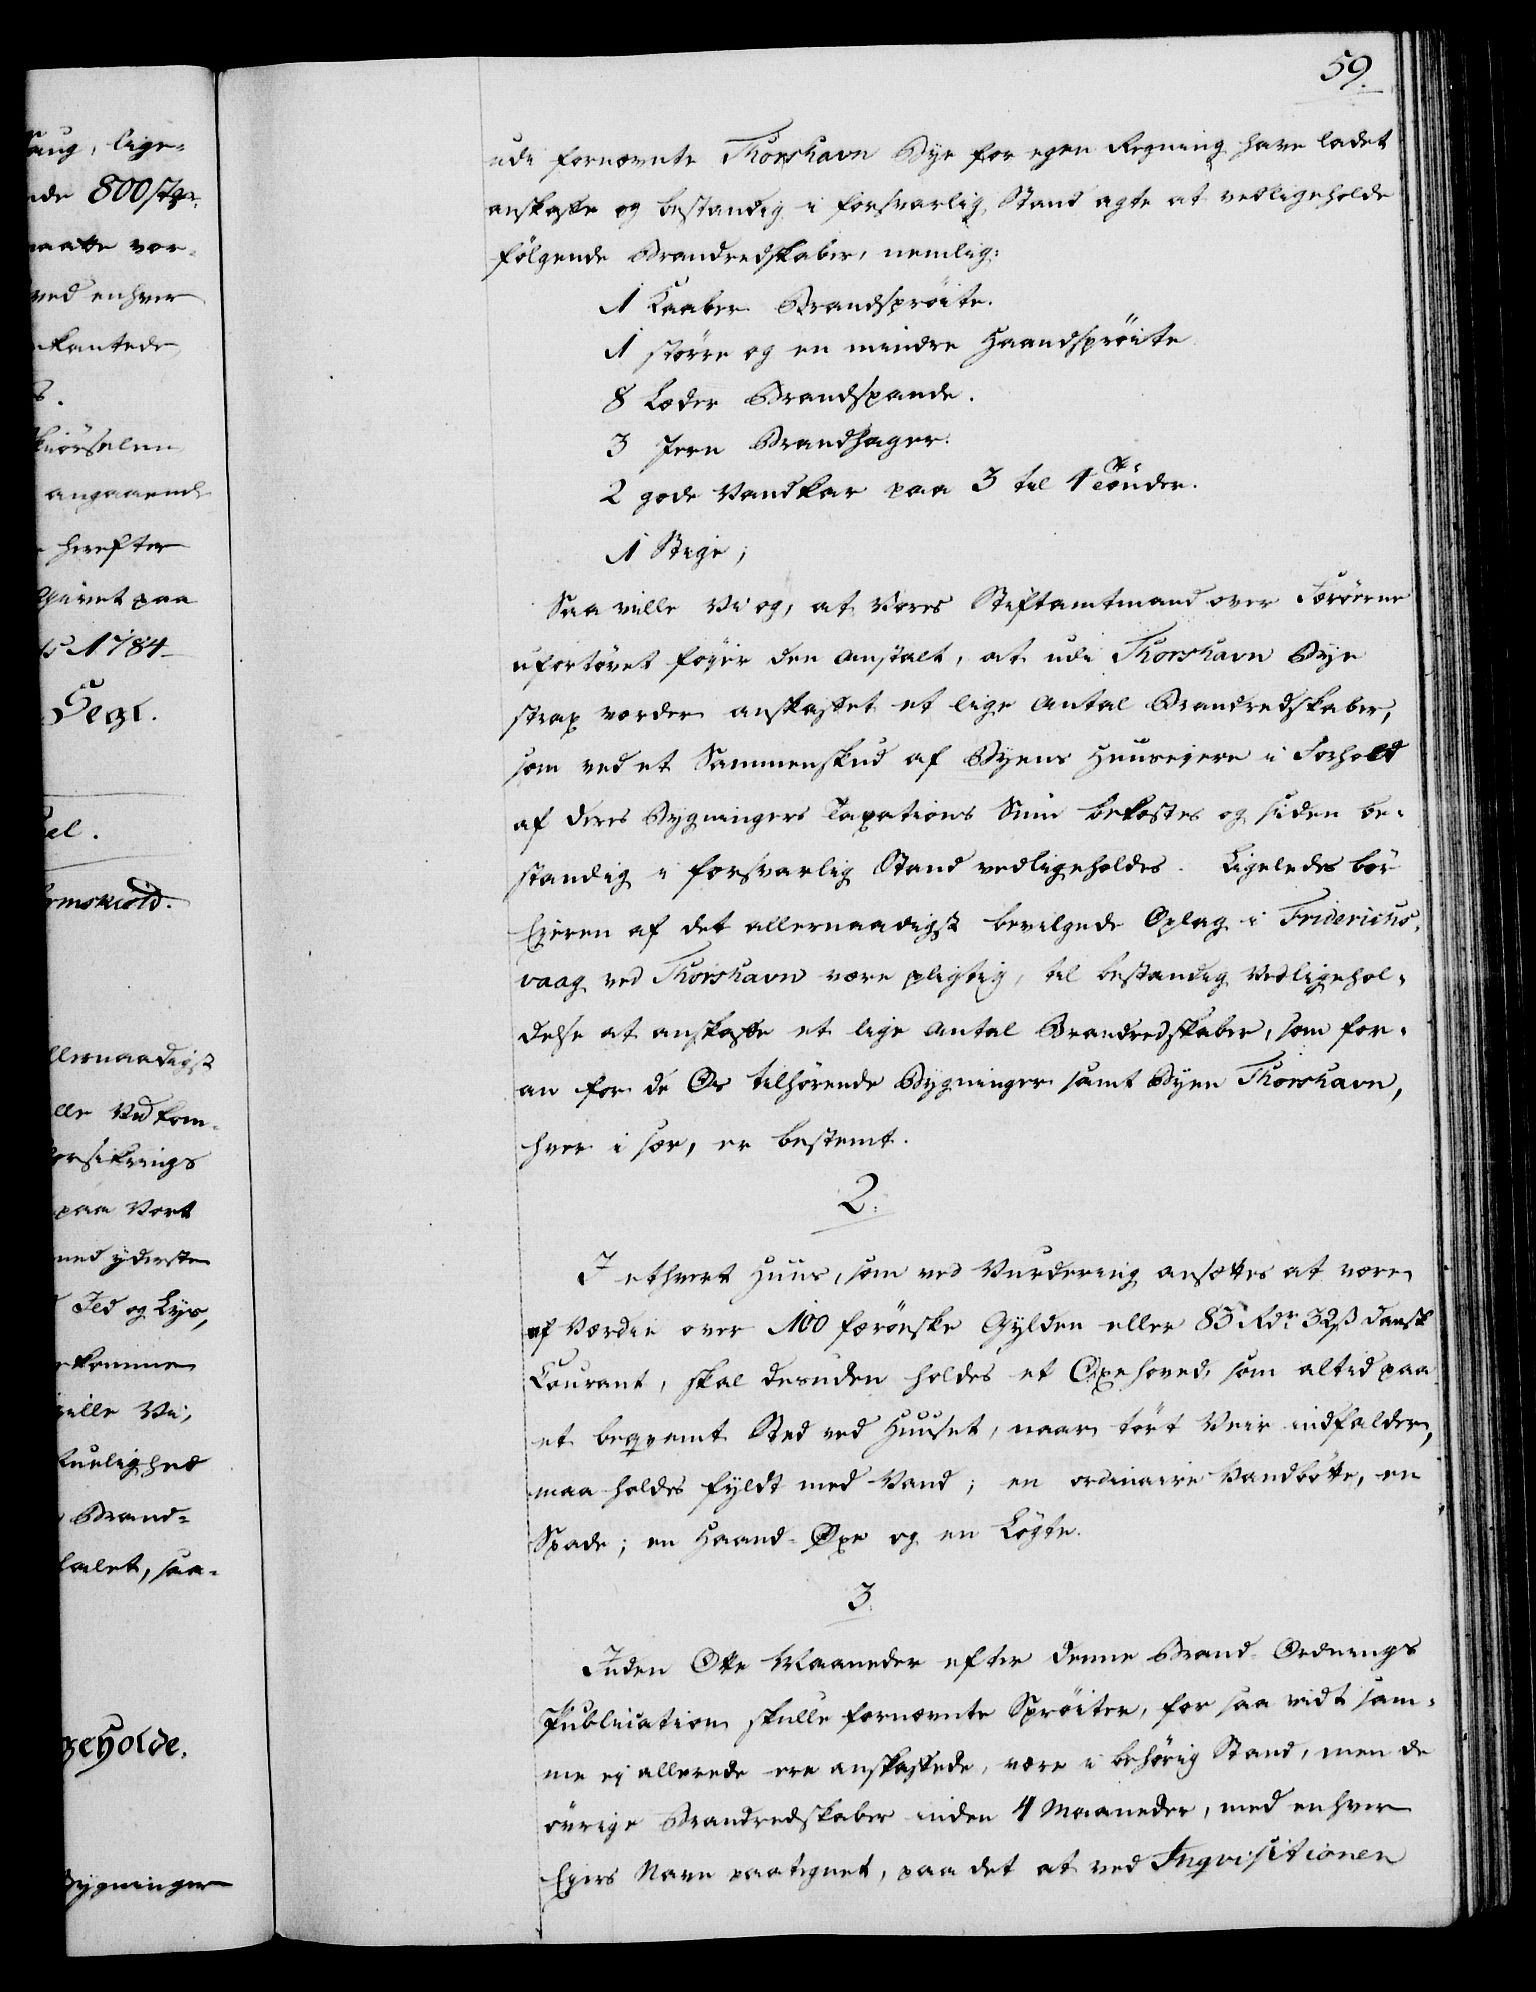 59.
udi fornævnte Thorshavn Bye for egen Regning have ladet
anskaffe og bestandig i forsvarlig Stand agte at vedligeholde
følgende Brandredskaber, nemlig:
1 Kaaber Brandsprøite.
1 større og en mindre Haandsprøite
8 Læder Brandspande.
3 Jern Brandhager.
2 gode Vandkar paa 3 til 4 Tönder.
1 Stige;
Saa ville Vi og, at Vores Stiftamtmand over Færöerne
ufortøvet föyer den Anstalt, at udi Thorshavn Bye
strax vorder anskaffet et lige Antal Brandredskaber,
som ved et Sammenskud af Byens Huuseiere i Forhold
af deres Bygningers Taxations Sum bekostes og siden be-
standig i forsvarlig Stand vedligeholdes. Ligeledes bør
Eieren af det allernaadigst bevilgede Oplag i Friderichs-
vaag ved Thorshavn være pligtig, til bestandig Vedligehol-
delse at anskaffe et lige Antal Brandredskaber, som for-
an for de Os tilhørende Bygninger samt Byen Thorshavn,
hver i sær, er bestemt.
2.
I ethvert Huus, som ved Vurdering ansættes at være
af Værdie over 100 færöeske Gylden eller 83 Rdr 32 ß dansk
Courant, skal desuden holdes et Oxehoved, som altid paa
et beqvemt Sted ved Huuset, naar tört Veir indfalder,
maa holdes fyldt med Vand; en ordinaire Vandbötte, en
Spade; en Haand-Öxe og en Lögte.
3.
Inden Otte Maaneder efter denne Brand-Ordnings
Publication skulle fornævnte Sprøiter, for saa vidt sam-
me ej allerede ere anskaffede, være i behörig Stand, men de
övrige Brandredskaber inden 4 Maaneder, med enhver
Eiers Navn paategnet, paa det at ved Inqvisitionen